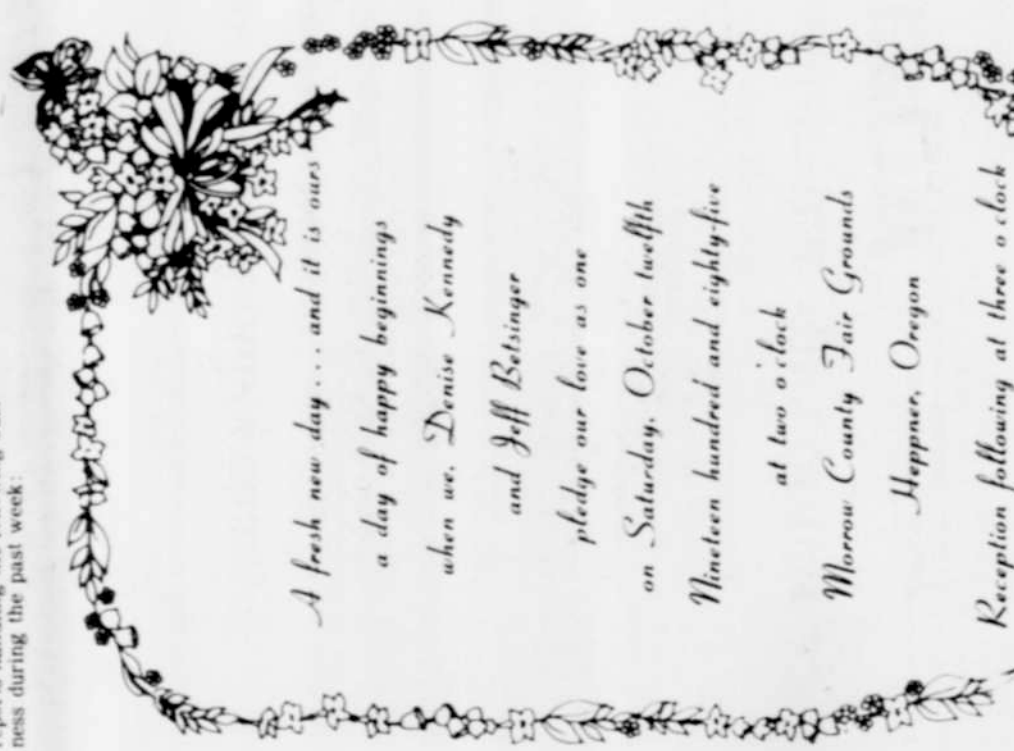 ness during the past week:
A fresh new day... and it is ours
a day of happy beginnings
when we, Denise Kennedy
and Jeff Betsinger
pledge our love as one
on Saturday, October twelfth
Nineteen hundred and eighty-five
at two o'clock
Morrow County Fair Grounds
Heppner, Oregon
Reception following at three o clock